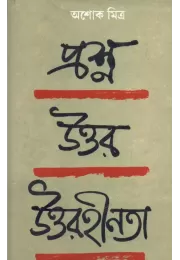 অশোক মিত্র
প্রশ্ন
উত্তর
উত্তরহীনতা